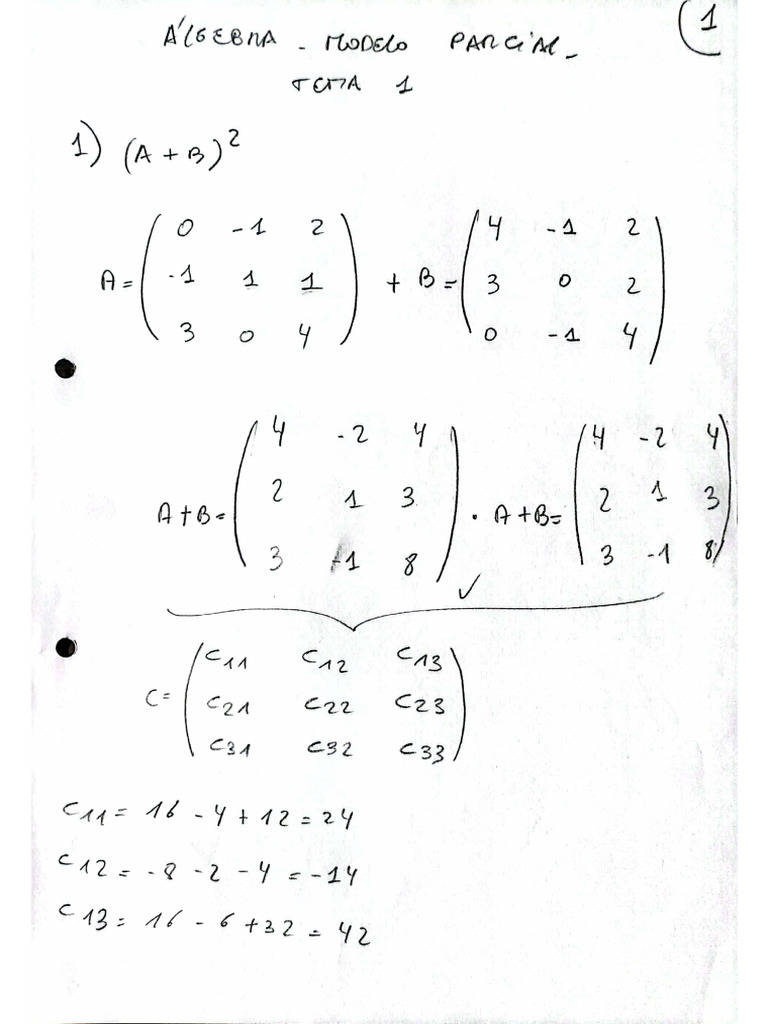 1
ÁLGEBRA - MODELO PARCIAL -
TEMA 1
1) (A + B)²
A = ( 0 -1 2
-1 1 1
3 0 4 ) + B = ( 4 -1 2
3 0 2
0 -1 4 )
A+B = ( 4 -2 4
2 1 3
3 -1 8 ) . A+B = ( 4 -2 4
2 1 3
3 -1 8 )
✓
C = ( C11 C12 C13
C21 C22 C23
C31 C32 C33 )
C11 = 16 - 4 + 12 = 24
C12 = -8 - 2 - 4 = -14
C13 = 16 - 6 + 32 = 42